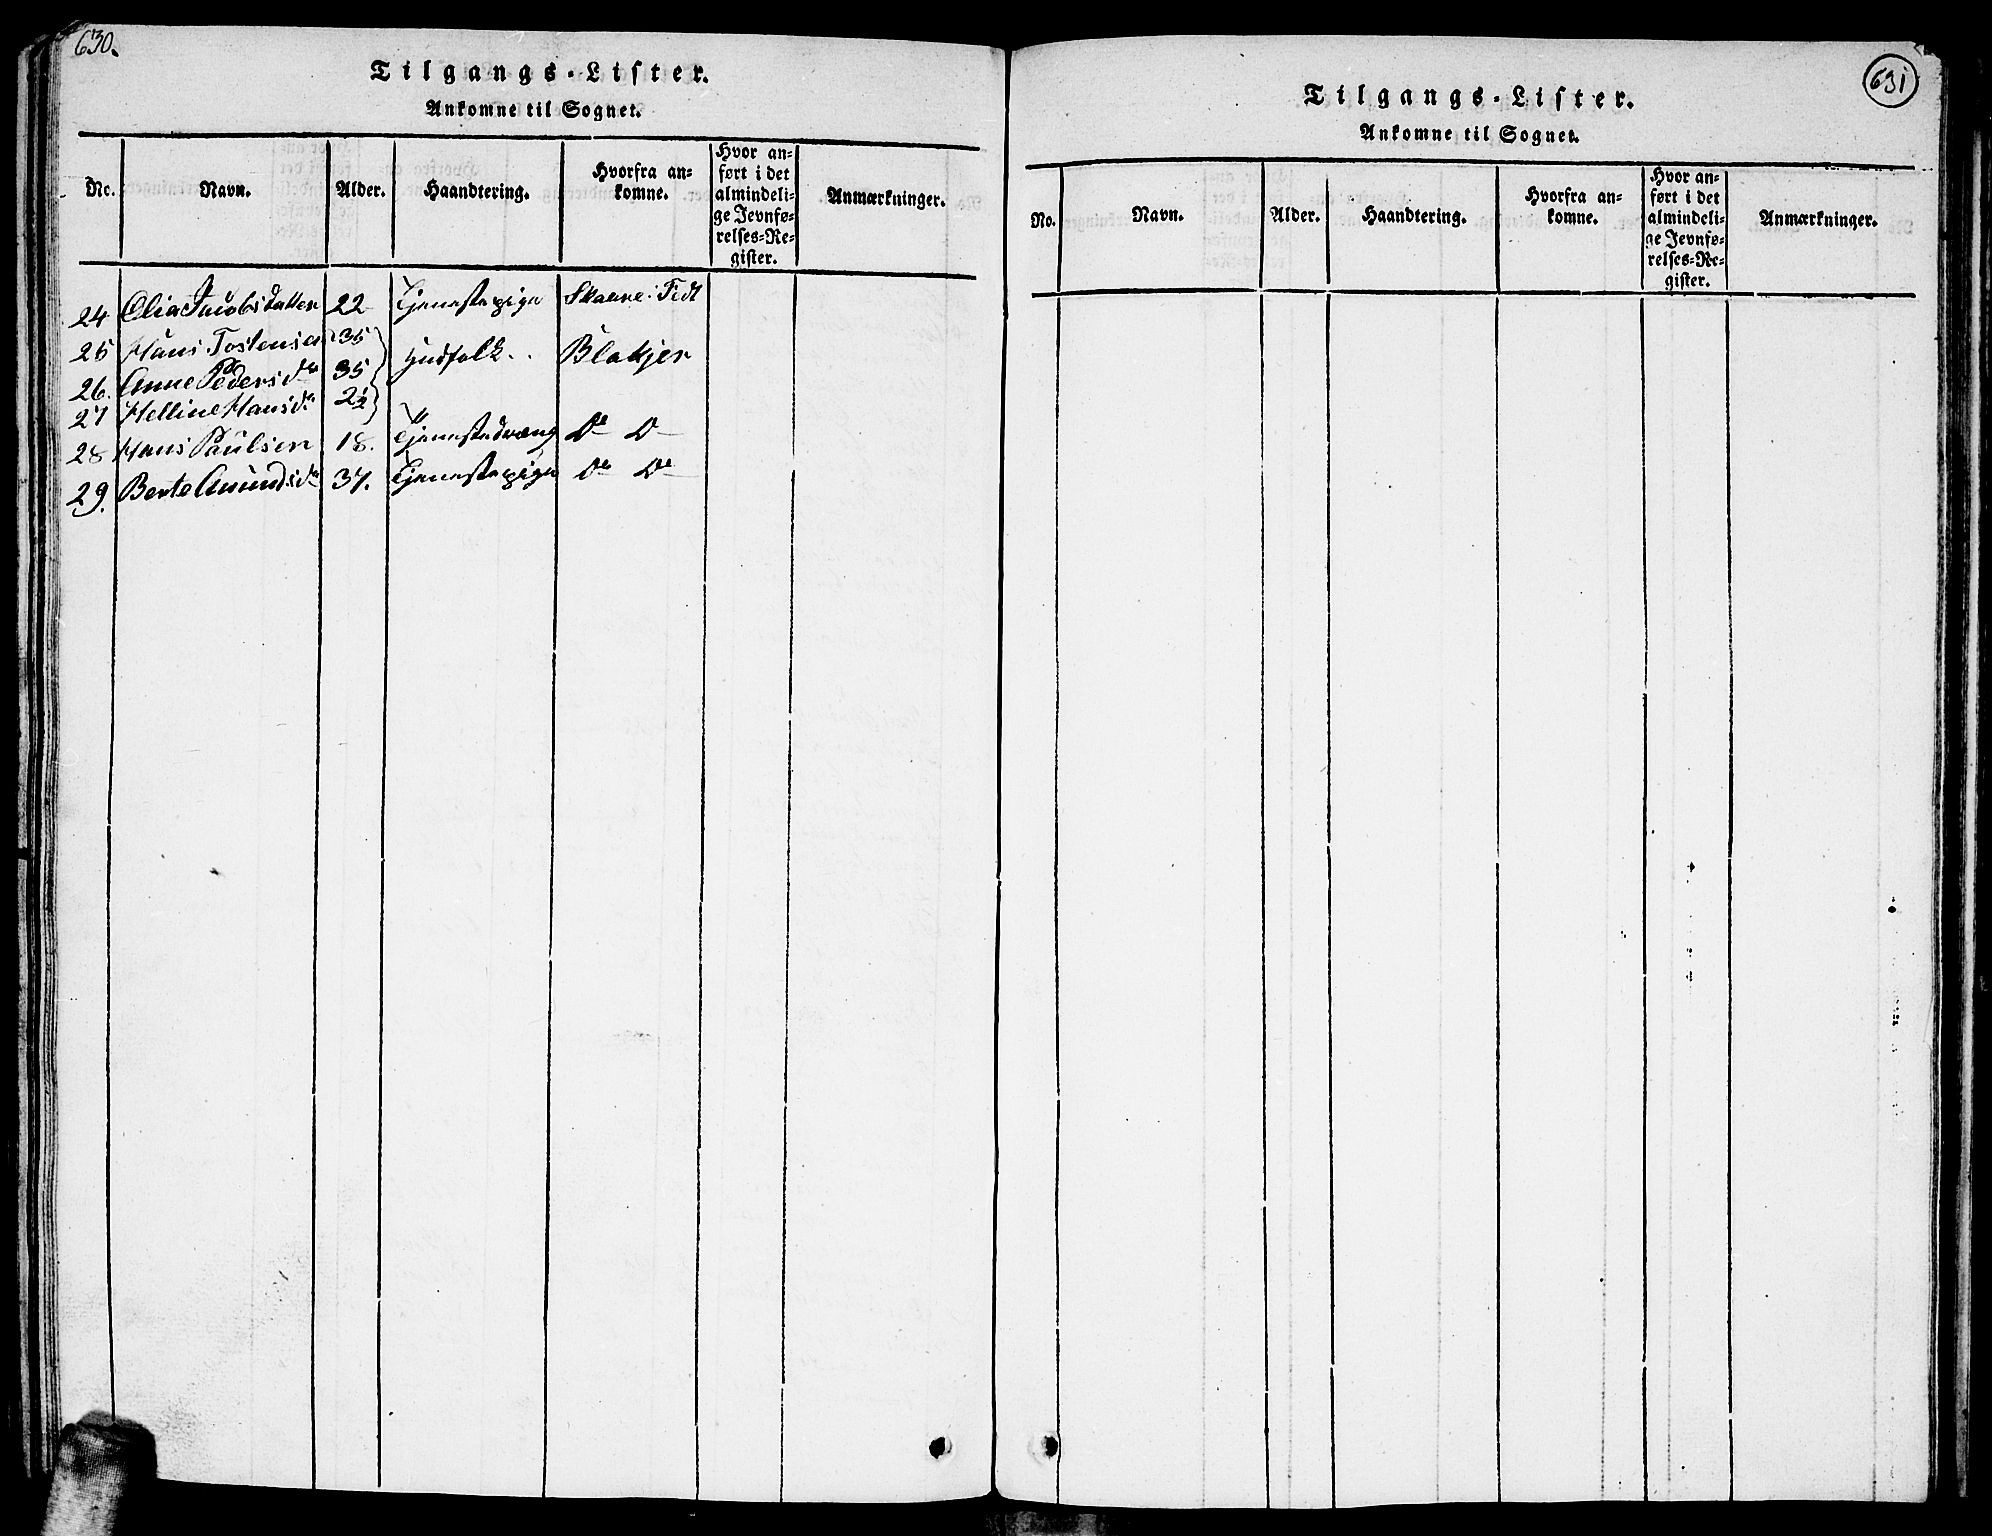 630.
Tilgangs-Lister.
Ankomne til Sognet.
No. Navn. Alder. Haandtering. Hvorfra an= komne. Hvor an= ført i det almindeli= ge Jevnfø= relses=Re= gister. Anmærkninger.
24 Olia Jacobsdatter 22 Tjenestepige Skaane: Fidt
25 Hans Tostensen 35
26. Anne Pedersdr 35 Huusfolk.. Blakjer
27 Helline Hansdr 2½ "
28 Hans Paulsen 18. Tjenestedreng Do Do
29. Berte Amundsdr 37. Tjenestepige Do Do
631
Tilgangs-Lister.
Ankomne til Sognet.
No. Navn. Alder. Haandtering. Hvorfra an= komne. Hvor an= ført i det almindeli= ge Jevnfø= relses=Re= gister. Anmærkninger.